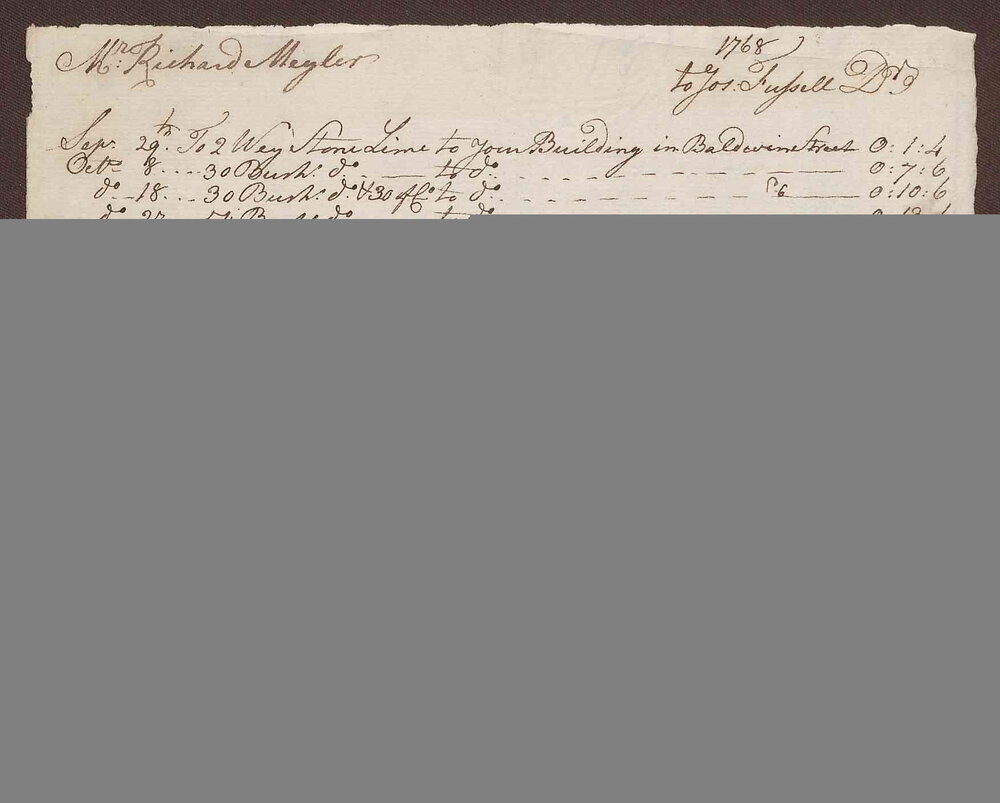 1768
Mr. Richard Meyler
to Jos. Fussell Dr.
Sepr. 29th. To 2 Wey Stone Lime to your Building in Baldwin Street 0:1:4
Octr. 8 .... 30 Bush.s do. to do. 0:7:6
do. 18 ... 30 Bush.s do. & 30 to do. 0:10:6